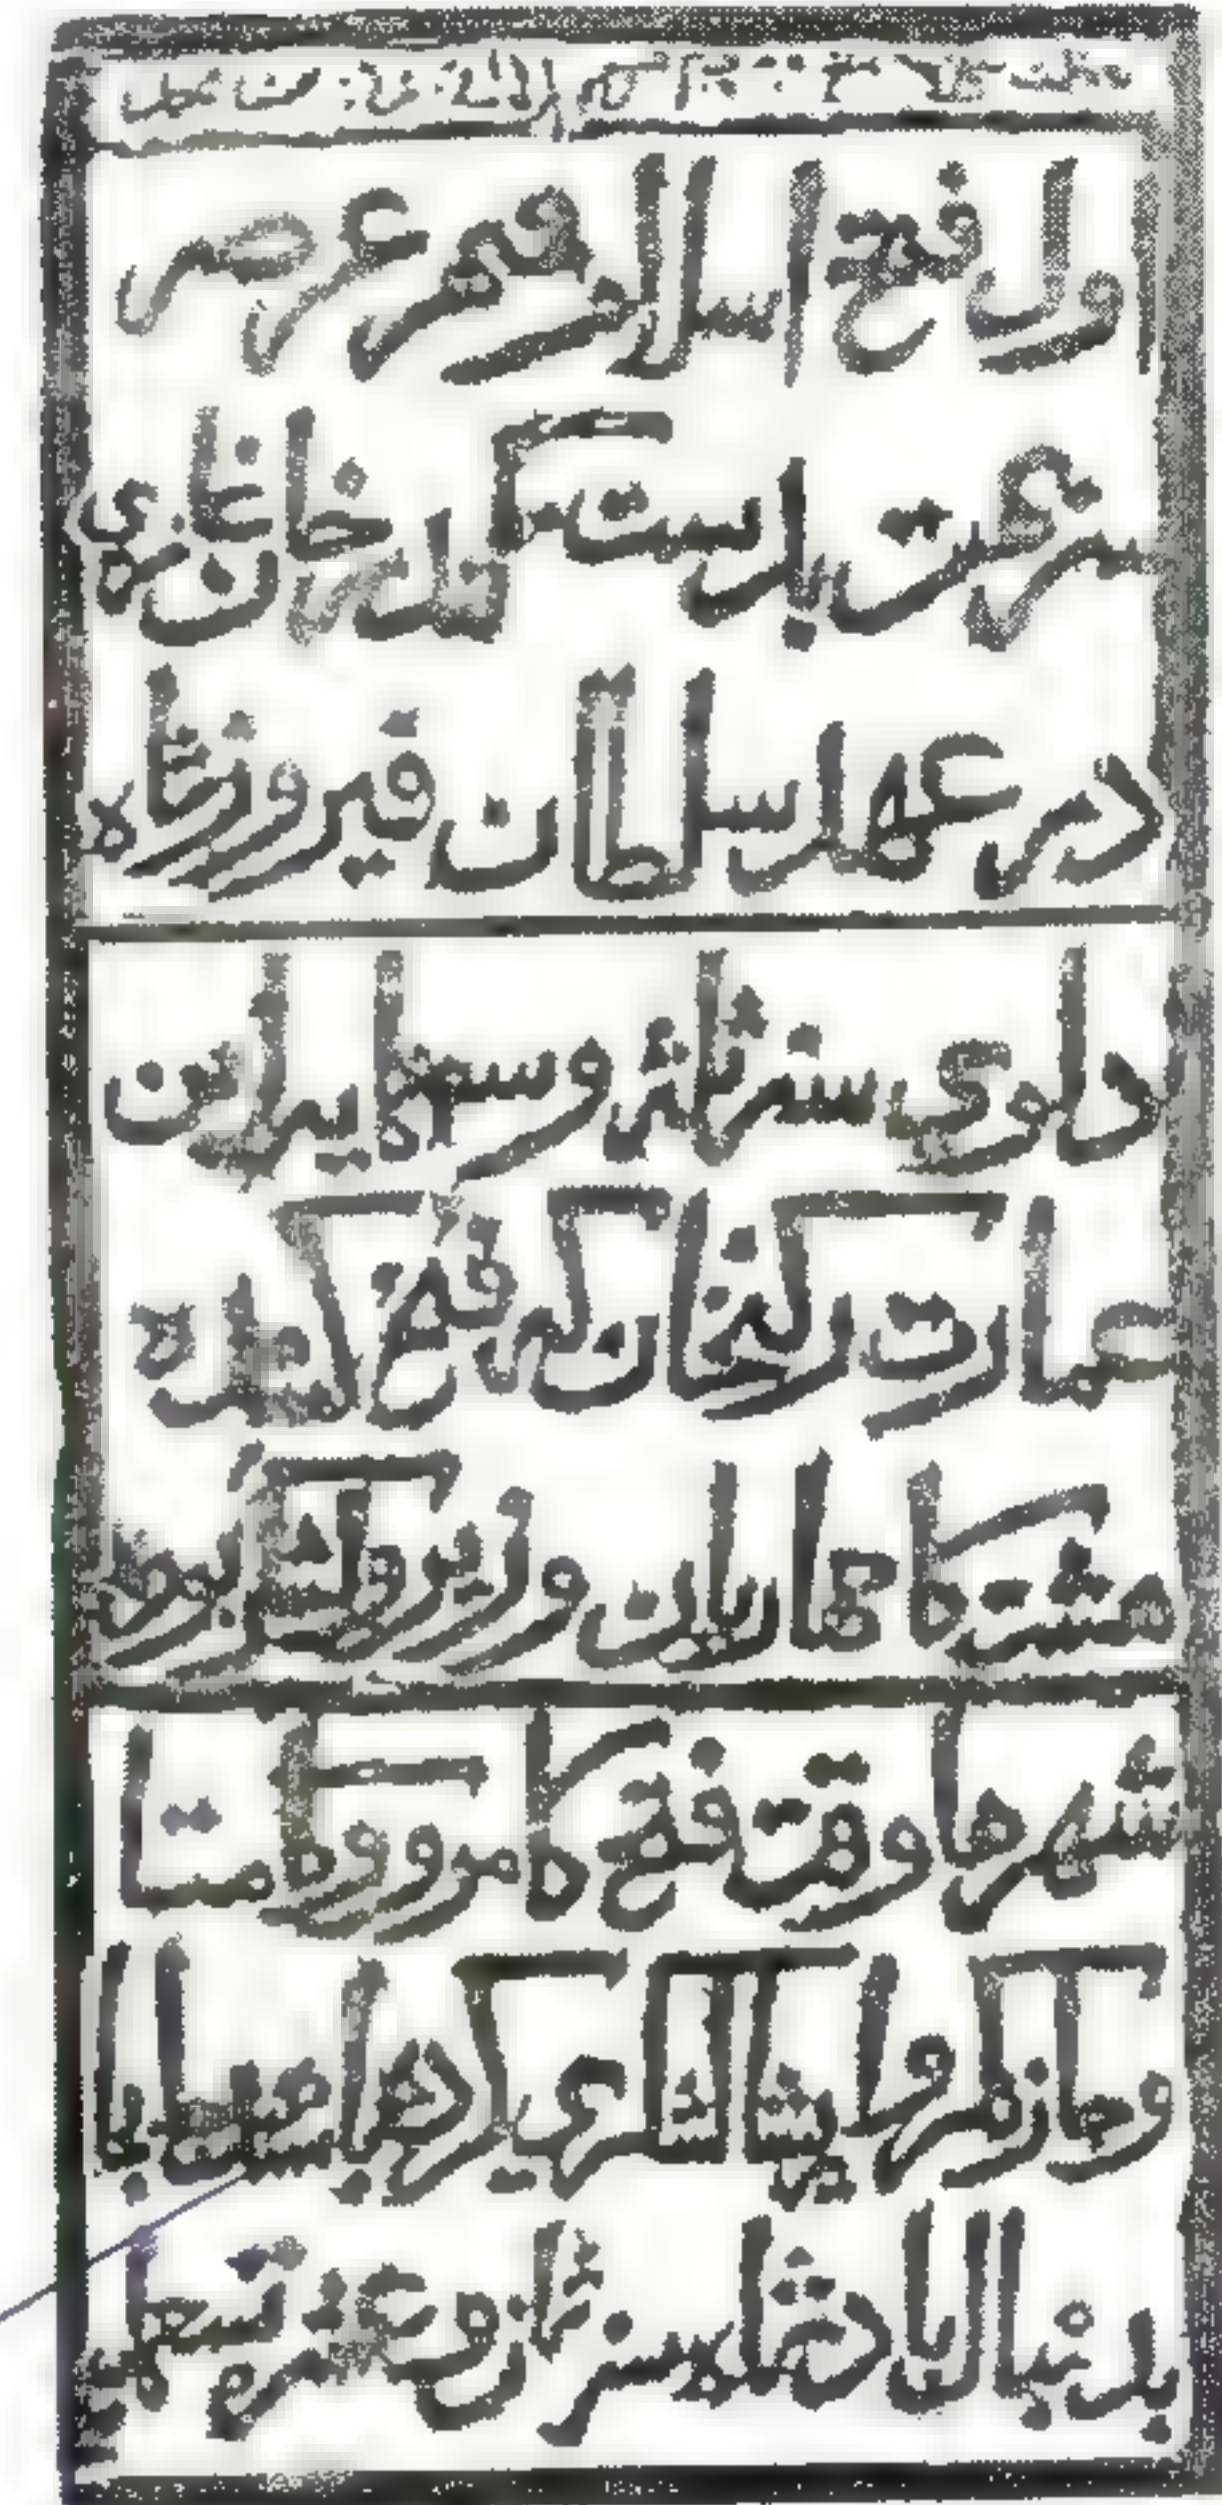 اول فتح اسلام شهر عرصه
سریهت بدست سکندر خان غازی
در عهد سلطان فیروز شاه
دلوی سنه ثلث و سبعمایه این
عمارت رکنخان که فتح کننده
هشت کامهاریان وزیر و لشکر بوده
شهرها وقت فتح کامرو و کامتا
و جازنکر و اریشا لشکری کرده باشند جابجا
بدنبال بادشاه سنه ثمان و عشر و تسعمایه